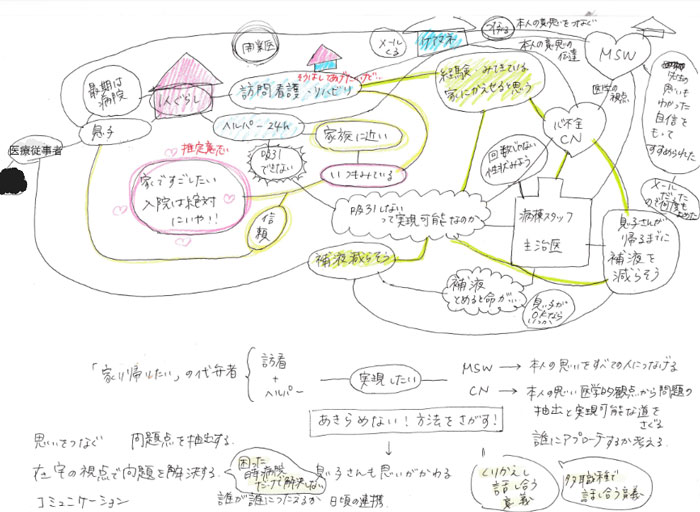 開業医
メールくる
ケアマネ
つなげる
本人の真意をつなぐ
本人の真意の
伝達
MSW
最期は
病院
1人ぐらし
訪問看護・リハビリ
経験 みてきている
家にかえせると思う
医学の視点
先生の
思いも
わかった
自信を
もって
すすめられた
医療従事者
息子
ヘルパー24h
家族に近い
心不全
CN
推定意思
吸引
できない
いつもみている
回数じゃない
性状みよう
メール
だった
家ですごしたい
入院は絶対
にいや!!
信頼
吸引しない
って実現可能なのか
病棟スタッフ
主治医
息子さんが
帰るまでに
補液を
減らそう
補液減らそう
補液
とめると命が…
息子が
「家に帰りたい」の代弁者
訪看
+
ヘルパー
実現したい
MSW → 本人の思いをすべての人につなげる
CN → 本人の思い 医学的観点から問題の
抽出と実現可能な道を
さぐる
誰にアプローチするか考える
あきらめない!方法をさがす!
思いをつなぐ 問題点を抽出する
在宅の視点で問題を解決する
困った
時病院
だけで解決しない
息子さんも思いがかわる
コミュニケーション
誰が誰につたえるか 日頃の連携
くりかえし
話し合う
意義
多職種で
話し合う意義